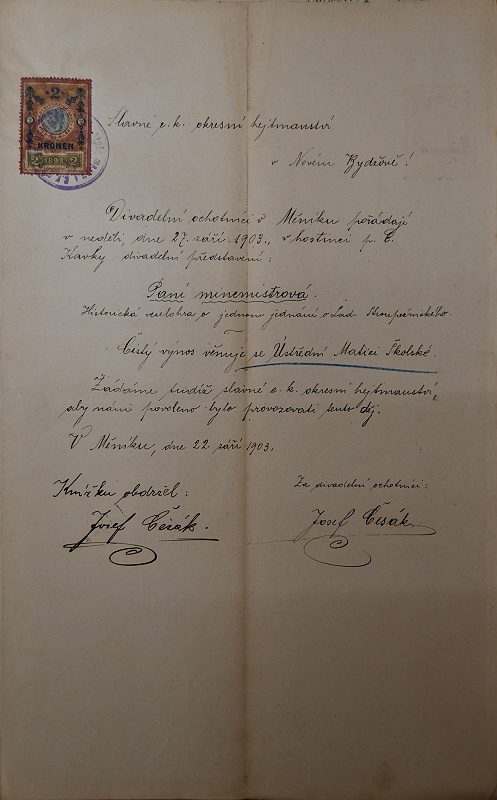 2
KRONEN
2 1898 2
Slavné c. k. okresní hejtmanství
v Novém Bydžově!
Divadelní ochotníci v Měníku pořádají
v neděli, dne 27. září 1903., v hostinci p. Č.
Kavky divadelní představení:
Paní mincmistrová.
Historická veselohra o jednom jednání od Lad. Stroupežnického.
Čistý výnos věnuje se Ústřední Matici Školské.
Žádáme tudíž slavné c. k. okresní hejtmanství,
aby nám povoleno bylo provozovati tento děj.
V Měníku, dne 22. září 1903.
Knížku obdržel:
Josef Čésák.
Za divadelní ochotníci:
Josef Čésák.